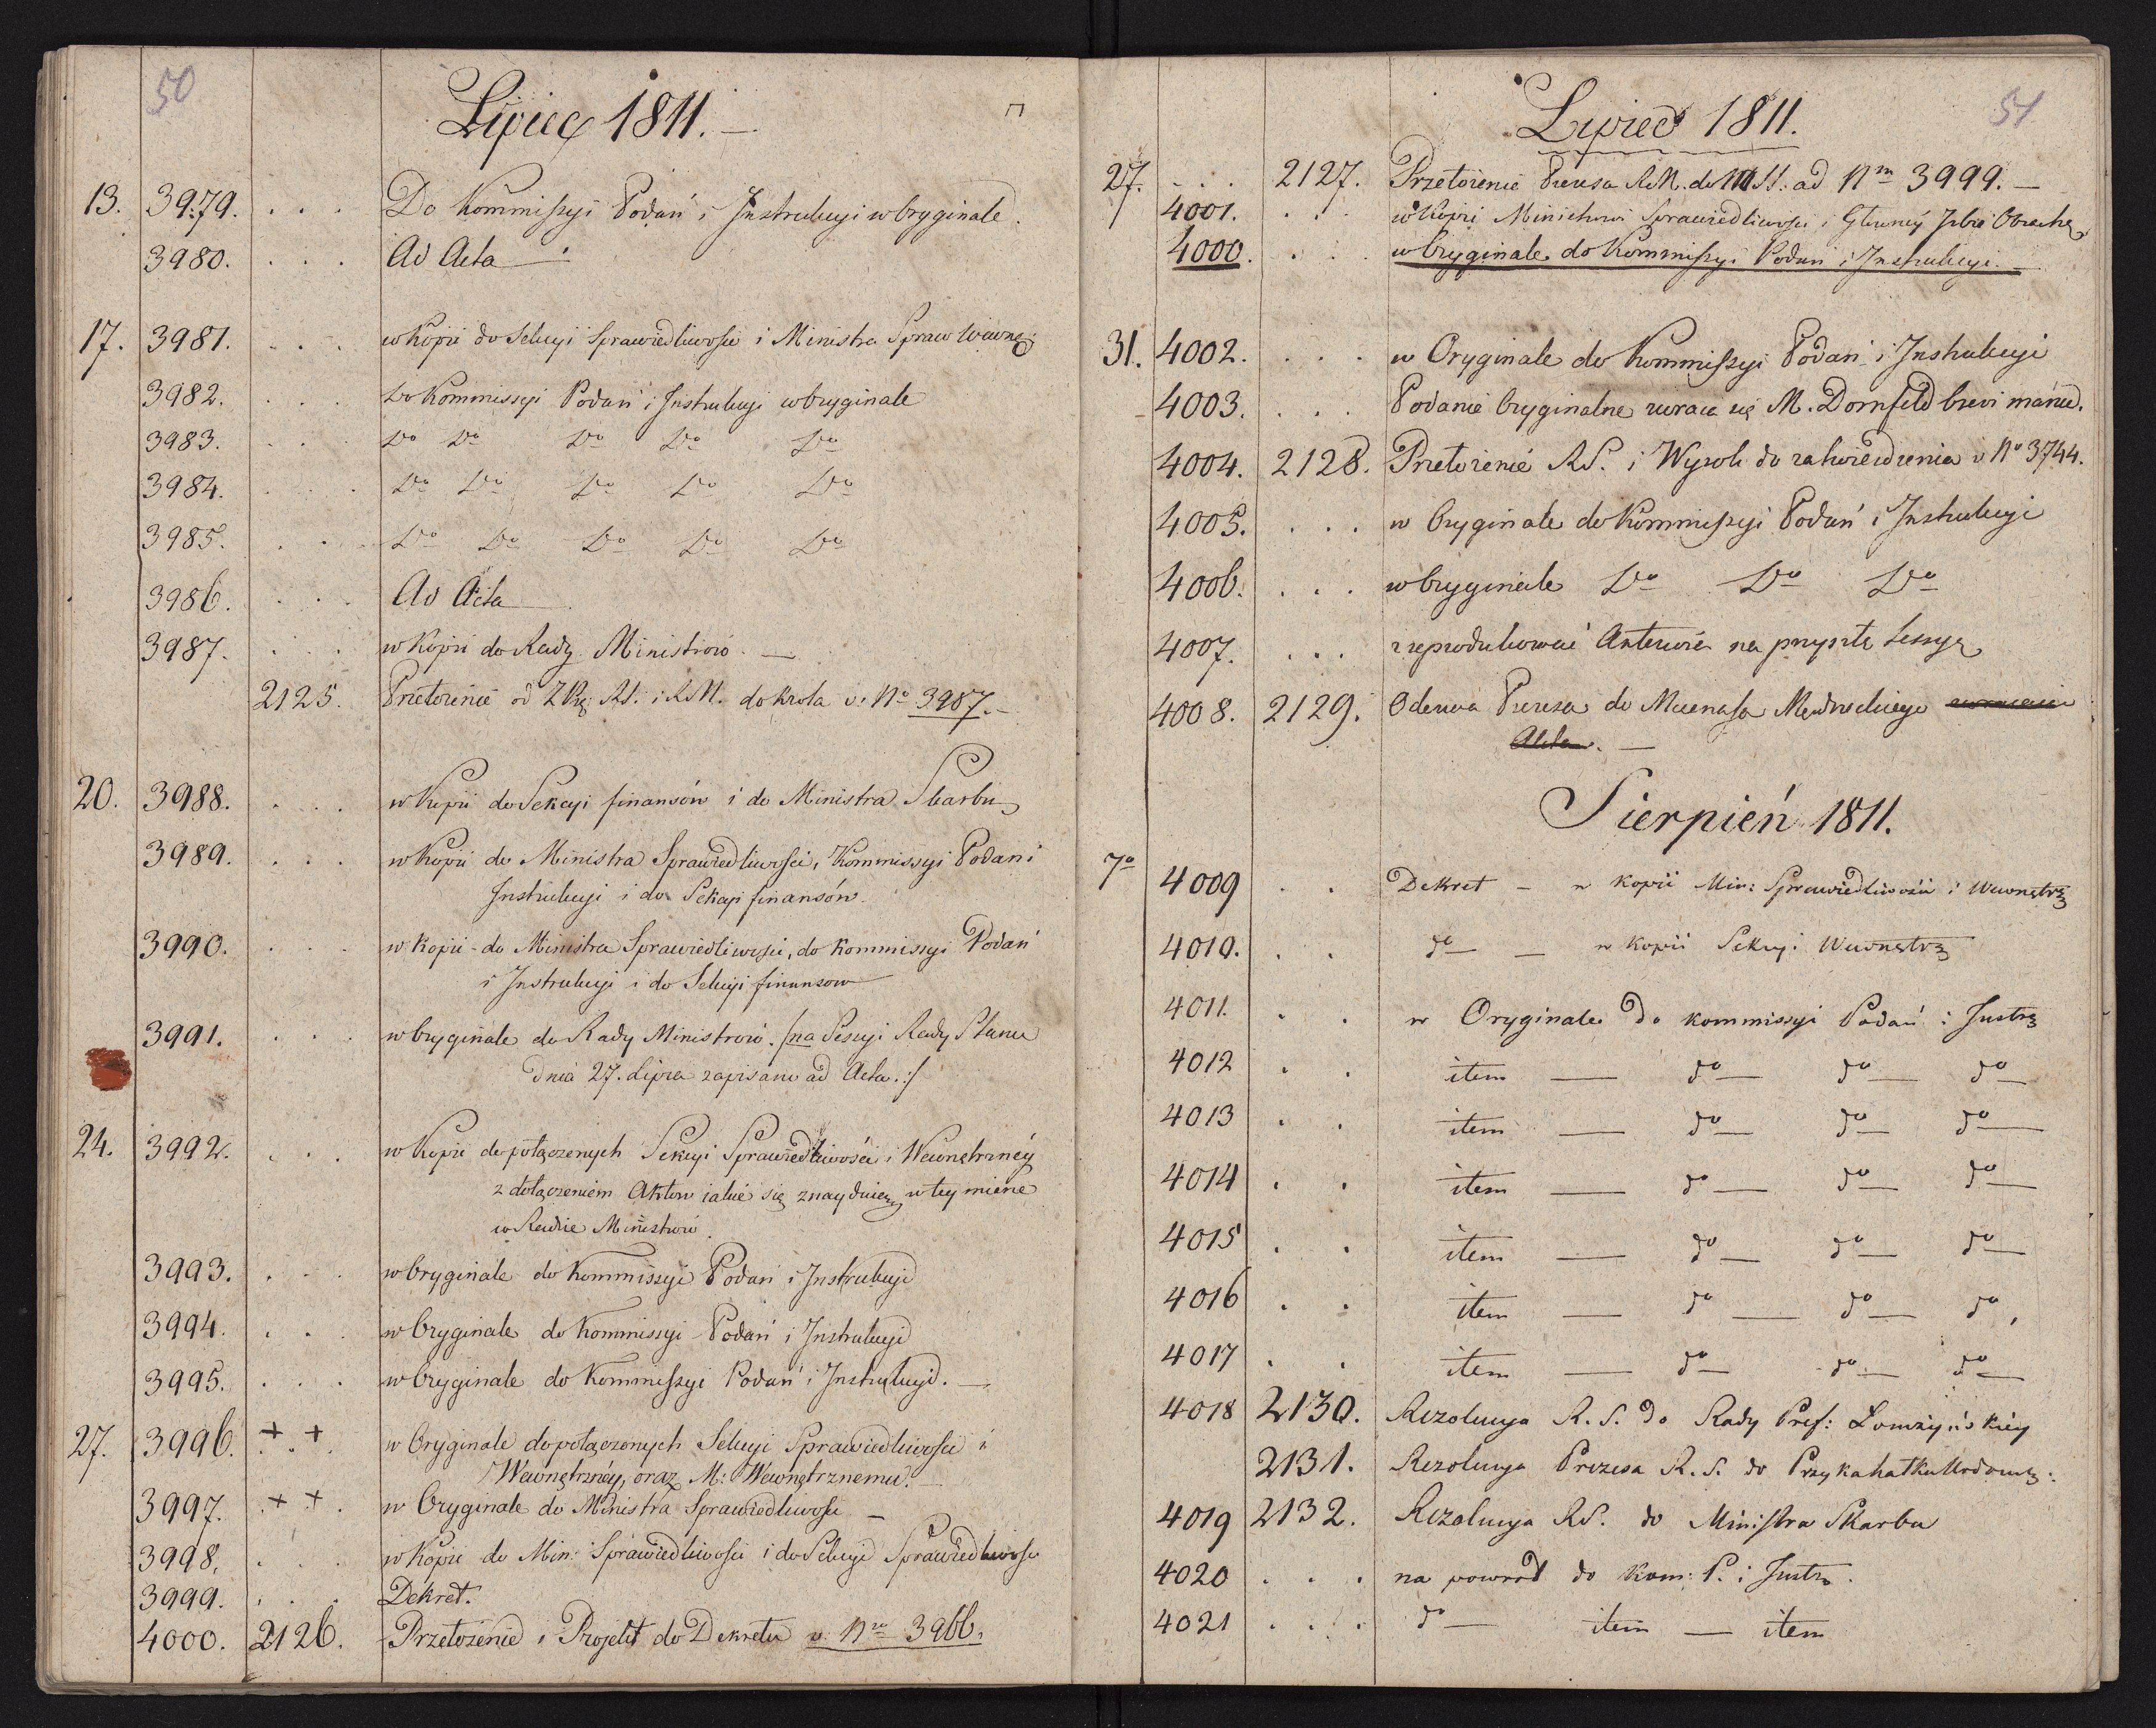 50
Lipiec 1811. –
13. 3979. . . . Do Kommissyi Podań i Instrukcyi w Oryginale.
3980. . . . Ad Acta —
17. 3981. . . . w Kopii do Sekcyi Sprawiedliwości i Ministra Spraw Wewnę:
3982. . . . Do Kommissyi Podań i Instrukcyi w Oryginale
3983. . . . Do Do Do Do Do
3984. . . . Do Do Do Do Do
3985. . . . Do Do Do Do Do
3986. . . . Ad Acta —
3987. . . . w Kopii do Rady Ministrów. —
2125. Przełożenie od RS. i RM. do Krola v: No 3987. –
20. 3988. . . . w Kopii do Sekcyi finansów i do Ministra Skarbu
3989. . . . w Kopii do Ministra Sprawiedliwości, Kommissyi Podań i
Instrukcyi i do Sekcyi finansów.
3990. . . . w Kopii do Ministra Sprawiedliwości, do Kommissyi Podań
i Instrukcyi i do Sekcyi finansow
3991. . . . w Oryginale do Rady Ministrow. /na Sessyi Rady Stanu
dnia 27. Lipca zapisano ad Acta. :/
24. 3992. . . . w Kopii do połączonych Sekcyi Sprawiedliwości i Wewnętrznéy
z dołączeniem Aktow iakie się znayduią w tey mierze
w Radzie Ministrow.
3993. . . . w Oryginale do Kommissyi Podań i Instrukcyi
3994. . . . w Oryginale do Kommissyi Podań i Instrukcyi
3995. . . . w Oryginale do Kommissyi Podań i Instrukcyi. —
27. 3996. + + w Oryginale do połączonych Sekcyi Sprawiedliwości i
Wewnętrznéy, oraz M: Wewnętrznemu. –
3997. + + w Oryginale do Ministra Sprawiedliwości –
3998. . . . w Kopii do Min: Sprawiedliwości i do Sekcyi Sprawiedliwości
3999. . . . Dekret.
4000. 2126. Przełożenie i Projekt do Dekretu v: Nro 3966.
51
Lipiec 1811.
27. . . . 2127. Przełożenie Prezesa R.M. do ad Nm 3999. –
4001. . . . w Kopii Ministrowi Sprawiedliwości i Głowney Izbie Obrach
4000. . . . w Oryginale do Kommissyi Podań i Instrukcyi. –
31. 4002. . . . w Oryginale do Kommissyi Podań i Instrukcyi
4003. . . . Podanie Oryginalne zwraca się M. Dornfeld brevi manu.
4004. 2128. Przełożenie RS. i Wyrok do zatwierdzenia v: No 3744.
4005. . . . w Oryginale do Kommissyi Podań i Instrukcyi
4006. . . . w Oryginale Do Do Do
4007. . . . zreprodukować Anteriora na przyszłą Sessyą
4008. 2129. Odezwa Prezesa do Mecenasa
Acta. —
Sierpień 1811.
7o 4009 . . Dekret – w kopii Min: Sprawiedliwości i Wewnętrz
4010. . . do — – w kopii Sekcyi Wewnętrz
4011. . . w Oryginale do kommissyi Podań i Instr
4012 . . item — do — do — do —
4013 . . item — do — do — do —
4014 . . item — do — do — do —
4015 . . item — do — do — do —
4016 . . item — do — do — do,
4017 . . item — do — do — do —
4018 2130. Rezolucya R. S. do Rady Pref: Łomżyńskiey
2131. Rezolucya Prezesa R. S. do
4019 2132. Rezolucya RS. do Ministra Skarbu
4020 . . . na powrót do Kom: P. i Instr.
4021 . . . do — item — item